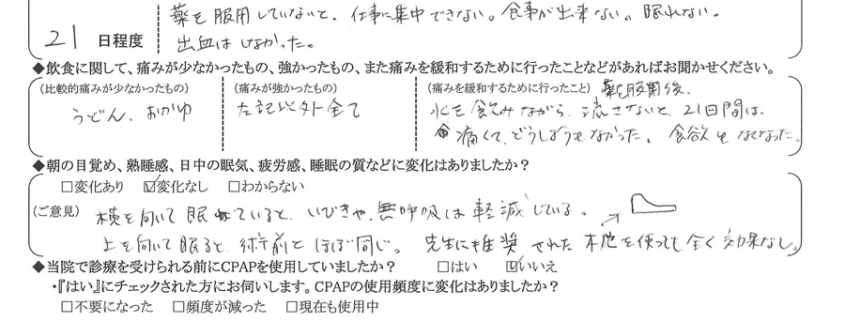 薬を服用していないと、仕事に集中できない。食事が出来ない。眠れない。
21 日程度 出血はしなかった。
◆飲食に関して、痛みが少なかったもの、強かったもの、また痛みを緩和するために行ったことなどがあればお聞かせください。
(比較的痛みが少なかったもの) (痛みが強かったもの) (痛みを緩和するために行ったこと) 薬服用後、
うどん、おかゆ 左記以外全て 氷を飲みながら、流さないと、21日間は、
痛くて、どうしようもなかった。食欲もなくなった。
◆朝の目覚め、熟睡感、日中の眠気、疲労感、睡眠の質などに変化はありましたか？
□変化あり ☑変化なし □わからない
(ご意見) 横を向いて眠っていると、いびきや、無呼吸は軽減している。
上を向いて眠ると、術前とほぼ同じ。先生に推奨された枕を使っても全く効果なし。
◆当院で診療を受けられる前にCPAPを使用していましたか？ □はい ☑いいえ
・『はい』にチェックされた方にお伺いします。CPAPの使用頻度に変化はありましたか？
□不要になった □頻度が減った □現在も使用中